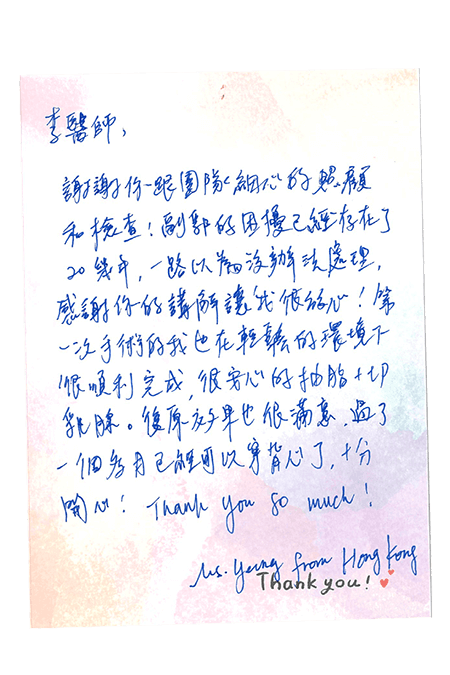 李醫師,
謝謝你跟團隊細心的照顧
和檢查!副乳的困擾已經存在了
20幾年,一路以為沒辦法處理,
感謝你的講解讓我很放心!第
一次手術的我也在輕鬆的環境下
很順利完成,很安心的抽脂+切
乳腺。復原效果也很滿意,過了
一個多月已經可以穿背心了,十分
開心! Thank you so much!
Ms. Yeung from Hong Kong
Thank you!